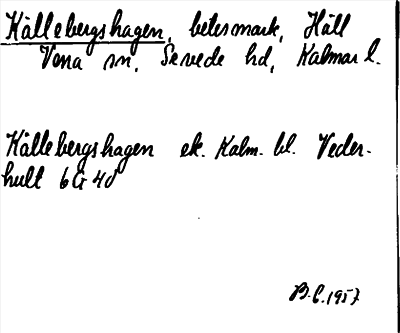 Källebergshagen, betesmark, Häll
Vena sn, Sevede hd, Kalmar l.
Källebergshagen ek. Kalm. bl. Veder-
hult 6G4d
B.C. 1957